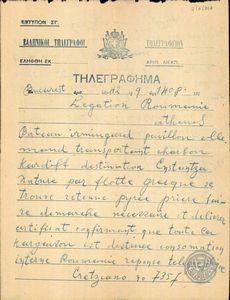 ΕΝΤΥΠΟΝ ΣΤ.
ΕΛΛΗΝΙΚΟΙ ΤΗΛΕΓΡΑΦΟΙ
ΤΗΛΕΓΡΑΦΕΙΟΝ
ΤΗΛΕΓΡΑΦΗΜΑ
Bucarest
Legation Roumanie
athenes
Bateau irmingard pavillon alle
mand transportant charbon
Kardiff destination
par flotte grecque se
trouve retenu pyree priere faire
demarche necessaire et delivrer
certificat confirmant que toute la
kargaison est destinee consomation
interne Roumanie reponse
Cretziano no 7357